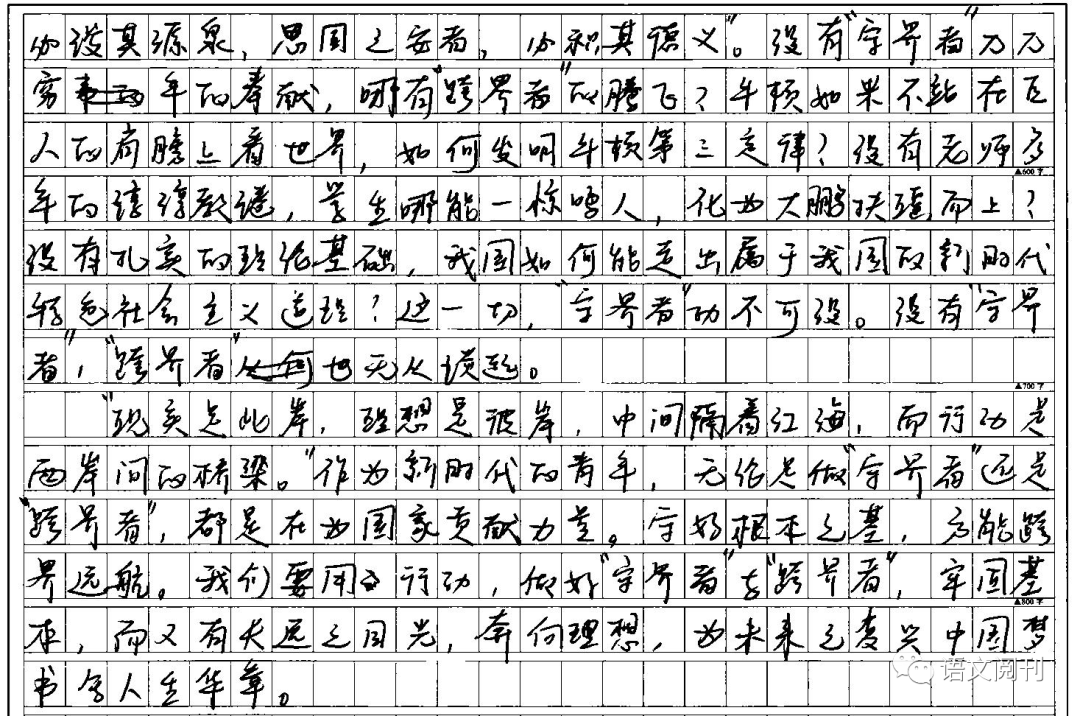 必浚其源泉，思国之安者，必积其德义”。没有“守界者”万万
穷年的奉献，哪有“跨界者”的腾飞？牛顿如果不站在巨
人的肩膀上看世界，如何发明牛顿第三定律？没有老师多
▲600字
年的谆谆教诲，学生哪能一惊鸣人，化为大鹏扶摇而上？
没有扎实的理论基础，我国如何能走出属于我国的新时代
特色社会主义道理？这一切，“守界者”功不可没。没有“守界
者”，“跨界者”也无从谈起。
▲700字
“现实是此岸，理想是彼岸，中间隔着红海，而行动是
两岸间的桥梁。”作为新时代的青年，无论是做“守界者”还是
“跨界者”，都是在为国家贡献力量。守好根本之基，方能跨
界远航。我们要用行动，做好“守界者”与“跨界者”，牢固基
▲800字
本，而又有长远之目光，奔向理想，为未来之复兴中国梦
书写人生华章。
语文阅刊